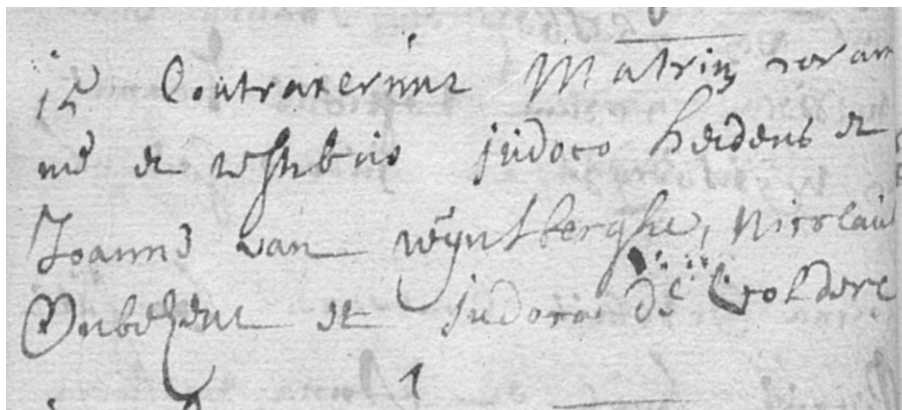 15 Contraxerunt Matrim coram
me et testibus Judoco heidens et
Joanne van wijntberghe, Nicolaus
Onbe et Judoca De Coldere